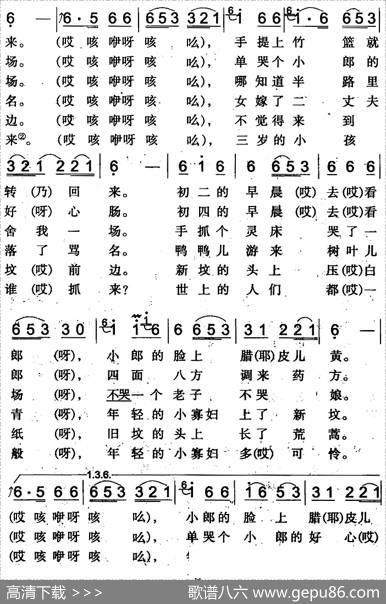 6 — — 6·5 66 (653 321) 6i·6 653
来。(哎 咳 咿呀 咳 么), 手 提上 竹 篮就
场。(哎 咳 咿呀 咳 么), 单 哭个 小 郎的
场。(哎 咳 咿呀 咳 么), 哪 知道 半 路里
名。(哎 咳 咿呀 咳 么), 女 嫁了 二 丈夫
边。(哎 咳 咿呀 咳 么), 不 觉得 来 到
来②。(哎 咳 咿呀 咳 么), 三 岁的 小 孩
321 221 6 — 6 1 6 6 653 6 6
转 (乃) 回 来。 初 二 的 早 晨 (哎) 去 (哎)看
好 (呀) 心 肠。 初 四 的 早 晨 (哎) 去 (哎)看
舍 我 一 场。 手 抓 个 灵 床 哭 了 一
落 了 骂 名。 鸭 鸭 儿 游 来 树 叶 儿
坟 (哎) 前 边。 新 坟 的 头 上 压 (哎)白
谁 (哎) 抓 来? 世 上 的 人 们 都 (哎)一
653 30 i i6 6 653 31 221 6 —
郎 (呀), 小 郎 的 脸 上 腊 (耶) 皮 儿 黄。
郎 (呀), 四 面 八 方 调 来 药 方。
场 (呀), 不哭 一 个 老 子 不 哭 娘。
青 (呀), 年 轻 的 小 寡 妇 上 了 新 坟。
纸 (呀), 旧 坟 的 头 上 长 了 荒 蒿。
般 (呀), 年 轻 的 小 寡 妇 多 (哎) 可 怜。
1.3.6.
6·5 66 (653 321) i 66 i6 53 31 221
(哎 咳 咿呀 咳 么), 小 郎的 脸 上 腊 (耶)皮儿
(哎 咳 咿呀 咳 么), 单 哭个 小 郎的 好 心 (哎)
(哎 咳 咿呀 咳 么),
高清下载 >>>
歌谱八六 www.gepu86.com